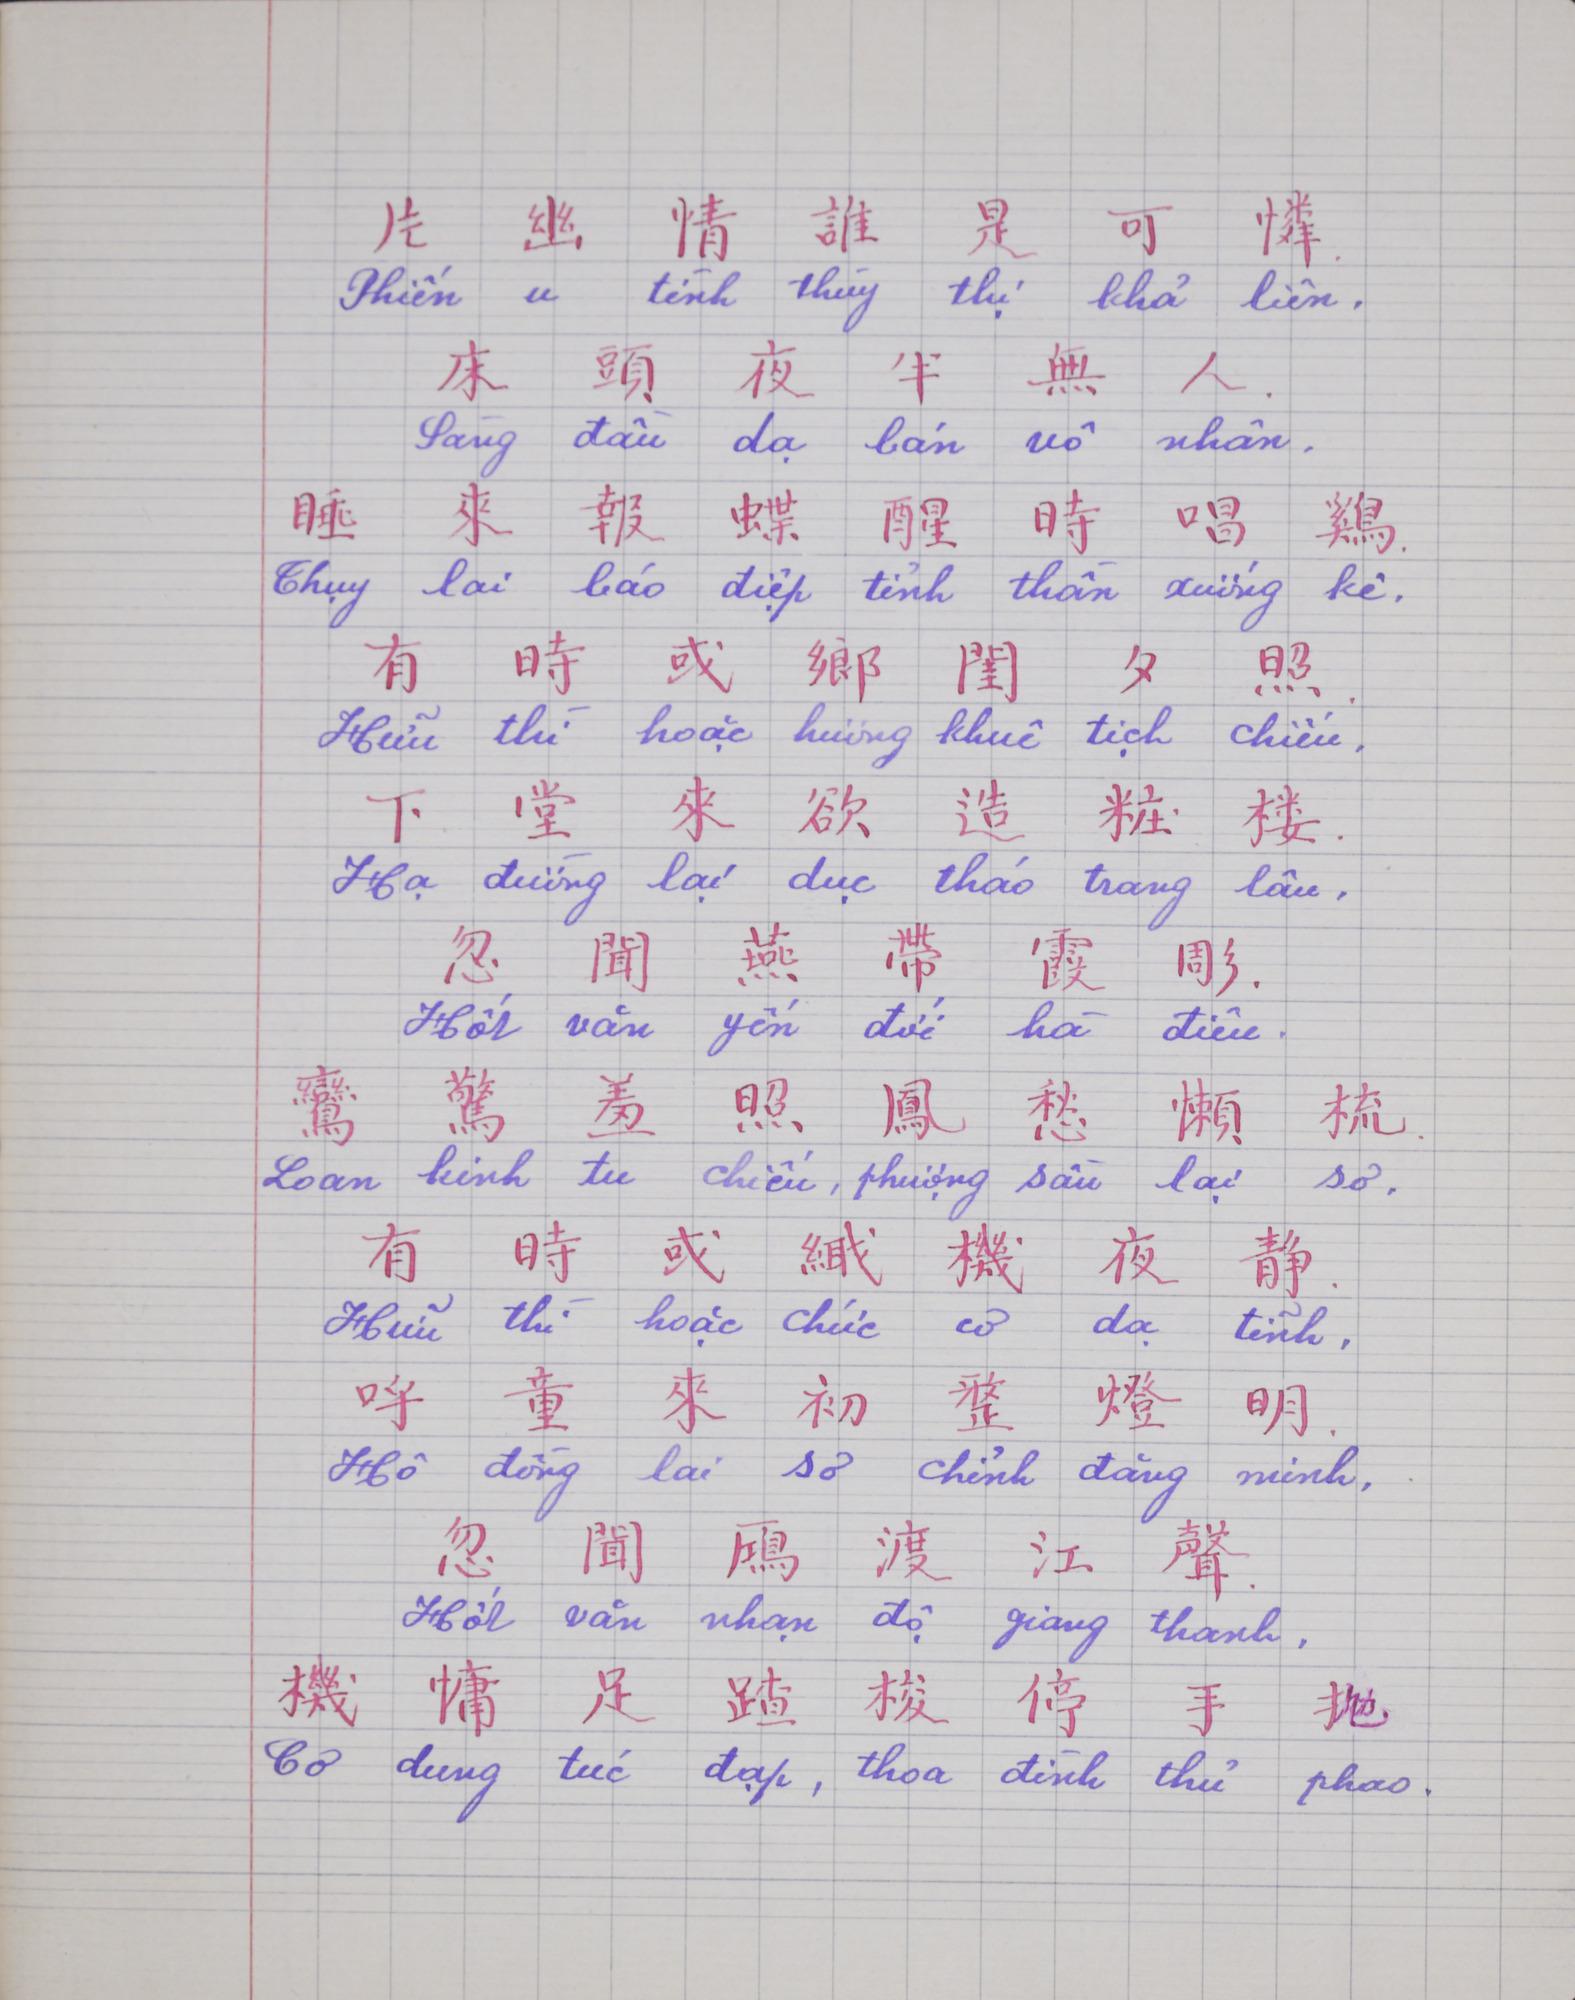 片 幽 情 誰 是 可 憐.
Phiến u tình thùy thị khả liên.
床 頭 夜 半 無 人.
Sàng đầu dạ bán vô nhân.
睡 來 報 蝶 醒 時 唱 鷄.
Thụy lai báo điệp tỉnh thần xướng kê.
有 時 或 鄉 閨 夕 照.
Hữu thì hoặc hương khuê tịch chiếu.
下 堂 來 欲 造 粧 楼.
Hạ đường lại dục tháo trang lâu.
忽 聞 燕 帶 霞 彫.
Hốt văn yến đới hà điêu.
鸞 驚 羞 照 鳳 愁 懶 梳.
Loan kinh tu chiếu, phượng sầu lại sơ.
有 時 或 織 機 夜 静.
Hữu thì hoặc chức cơ dạ tĩnh.
呼 童 來 初 整 燈 明.
Hô đồng lai sơ chỉnh đăng minh.
忽 聞 鴈 渡 江 聲.
Hốt văn nhạn độ giang thanh.
機 慵 足 踏 梭 停 手 抛.
Cơ dung túc đạp, thoa đình thủ phao.